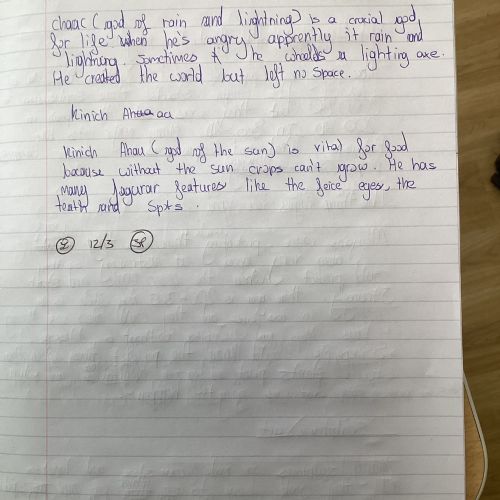 chaac (god of rain and lightning) is a crucial god
for life when he's angry apprently it rain and
lightning. Sometimes he wheelds a lighting axe.
He created the world but left no space.
Kinich Ahaaaa
Kinich Ahau (god of the sun) is vital for food
because without the sun crops can't grow. He has
many Jagurar features like the feice eyes, the
teath and spots.
12/3